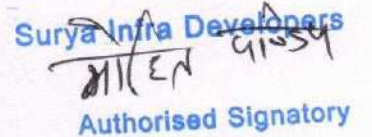 Surya Infra Developers
मोहित पाण्डेय
Authorised Signatory